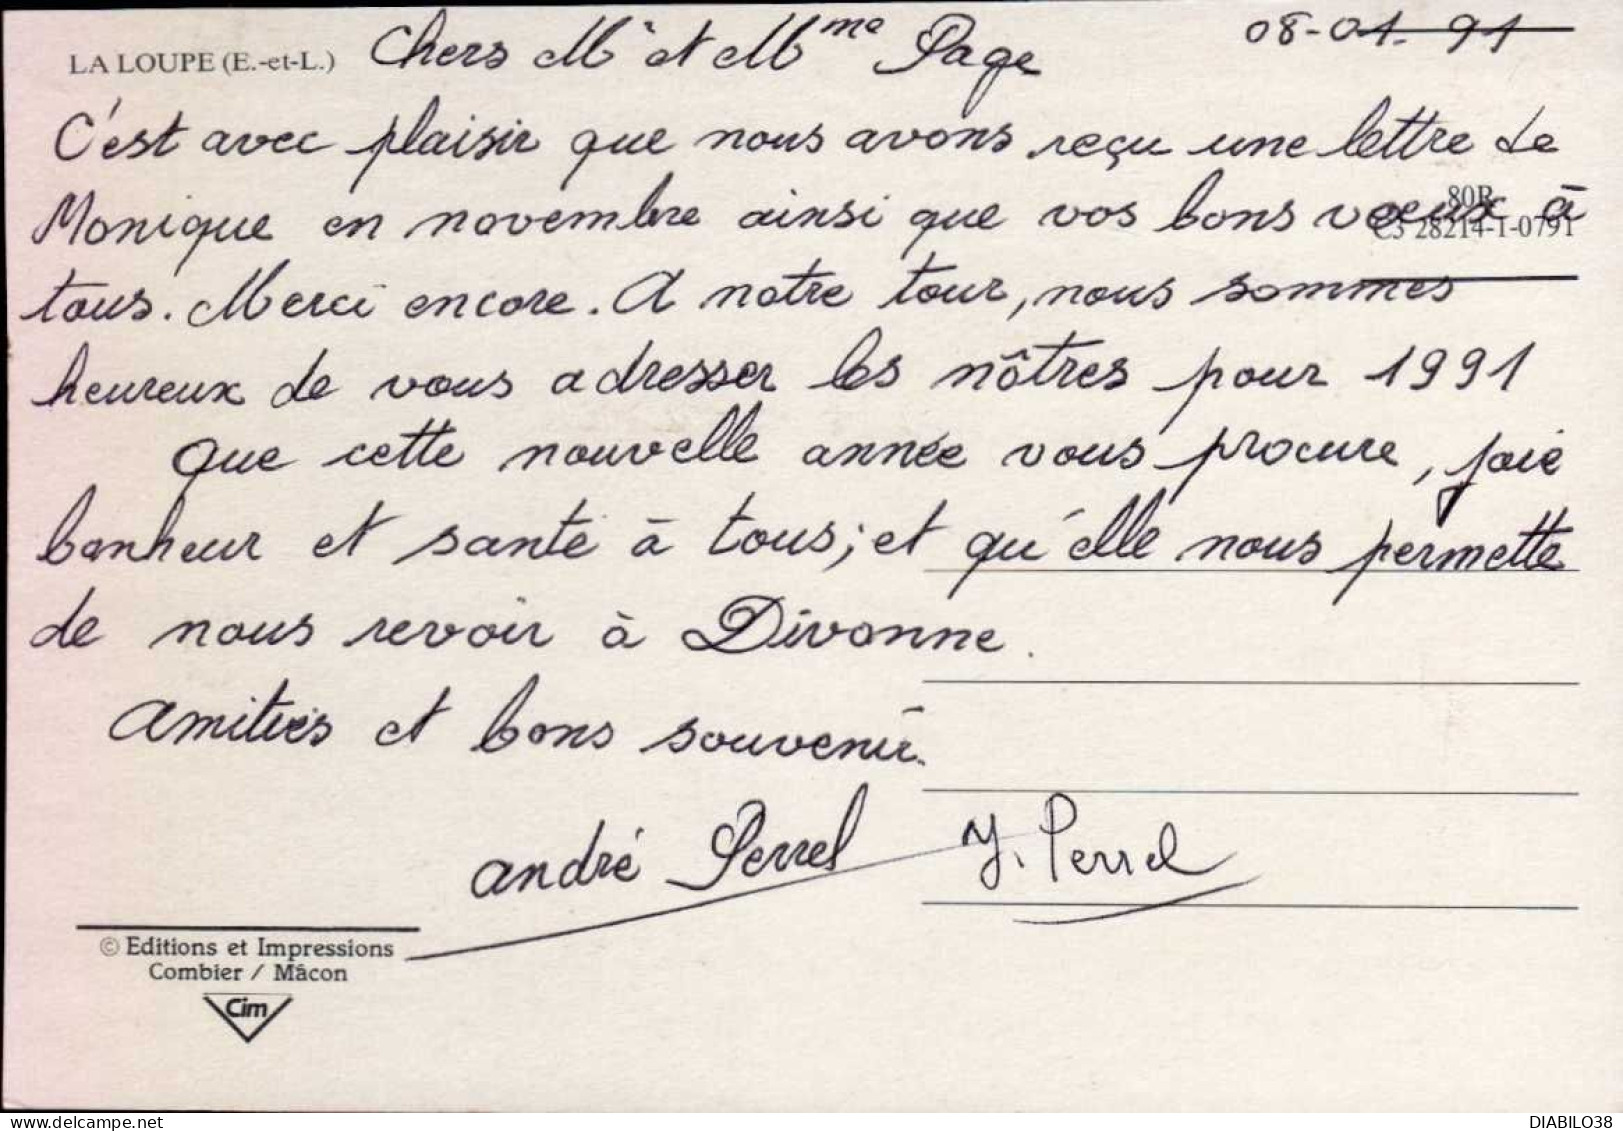 08-01-91
LA LOUPE (E.-et-L.) Chers Mr et Mme Page
C'est avec plaisir que nous avons reçu une lettre de
Monique en novembre ainsi que vos bons voeux à
80R
C3 28214-1-0791
tous. Merci encore. A notre tour, nous sommes
heureux de vous adresser les nôtres pour 1991
Que cette nouvelle année vous procure, joie
bonheur et santé à tous; et qu'elle nous permette
de nous revoir à Divonne.
Amitiés et bons souvenir.
andré Perrel Y. Perrel
© Editions et Impressions
Combier / Mâcon
Cim
DIABILO38